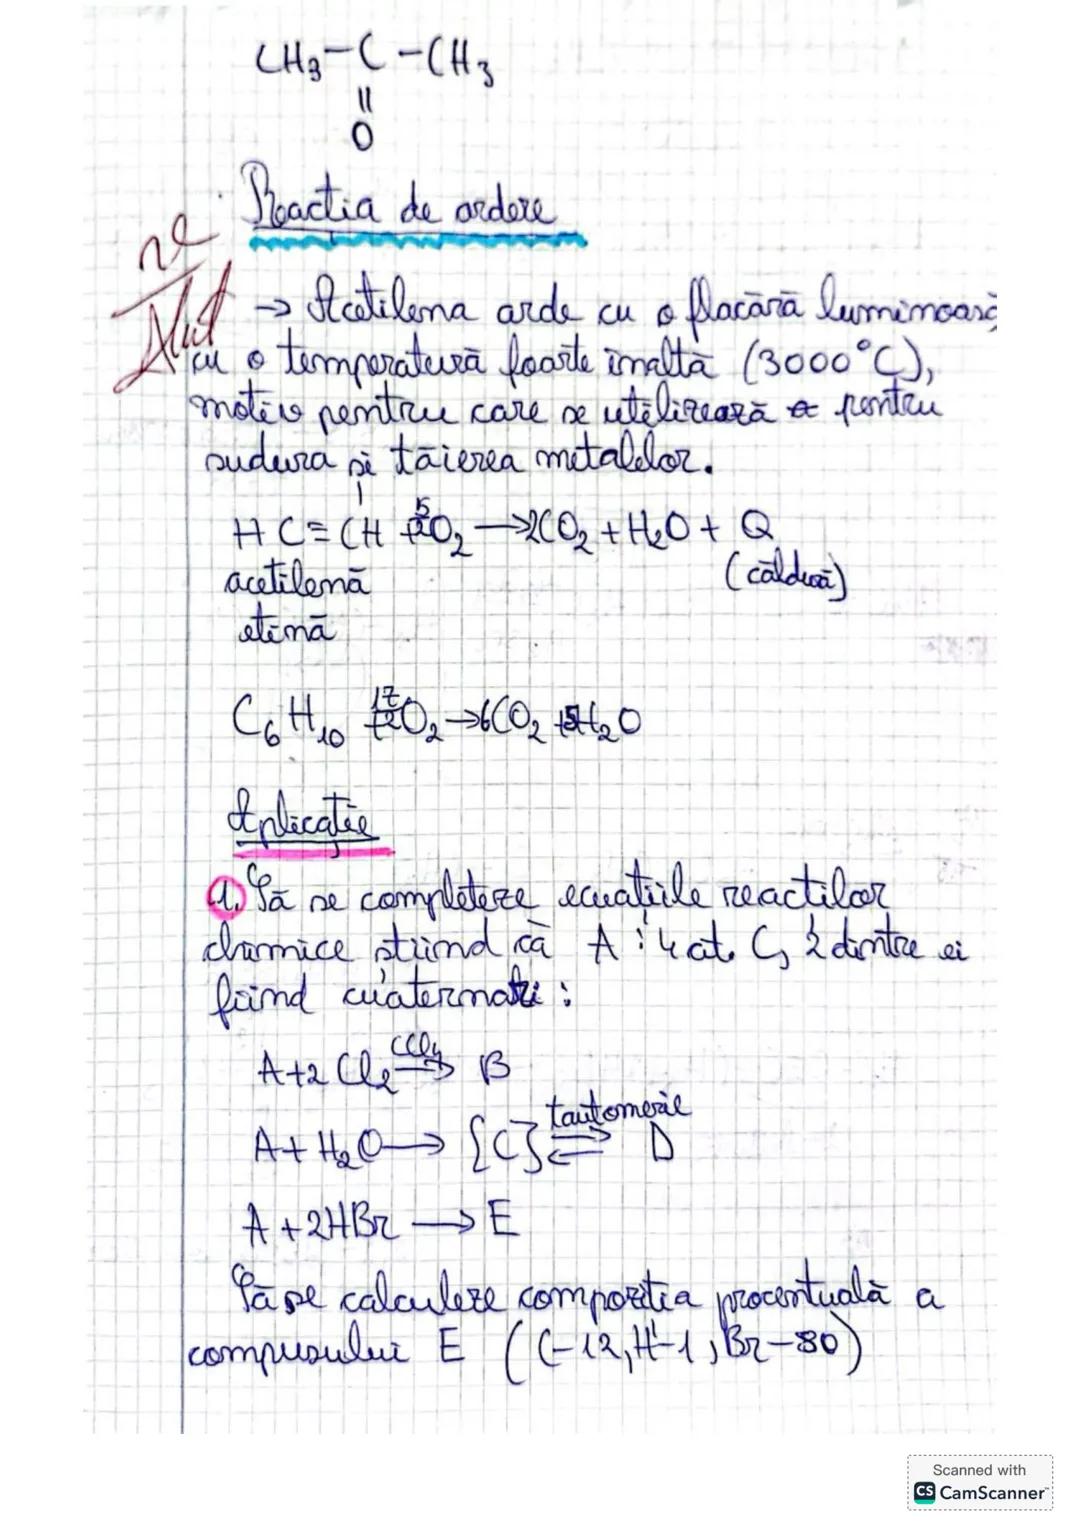 CH3-C-CH3
||
O
Reactia de ardere
→ Acetilena arde cu o flacără luminoasă
cu o temperatură foarte înaltă (3000°C),
motiv pentru care se utilizează pentru
sudura și tăierea metalelor.
HC≡CH + 5/2 O2 → 2CO2 + H2O + Q
acetilenă (căldură)
etină
C6H10 + 17/2 O2 → 6CO2 + 5H2O
Aplicație
1. Să se completeze ecuațiile reactilor
chimice știind că A : 4 at. C, 2 dintre ei
fiind cuaternari :
A+2Cl2 CCl4→ B
A+H2O → [C] tautomerie ⇌ D
A+2HBr → E
Să se calculeze compoziția procentuală a
compusului E (C-12, H-1, Br-80)
Scanned with
CS CamScanner